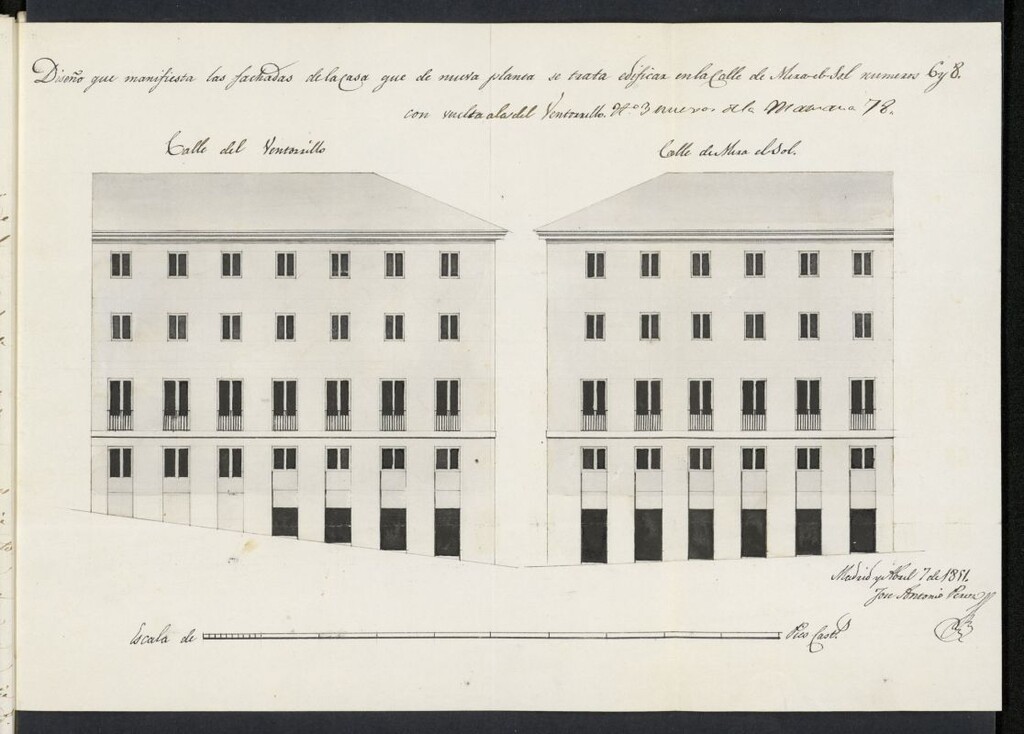 Diseño que manifiesta las fachadas de la Casa que de nueva planta se trata edificar en la Calle de Mira el Sol numeros 6 y 8.
con vuelta a la del Ventorrillo. Nº 3 nuevos de la Manzana 78.
Calle del Ventorrillo
Calle de Mira el Sol.
Madrid y Abril 7 de 1851.
Jose Antonio Perez
Escala de
Pies Cast.s